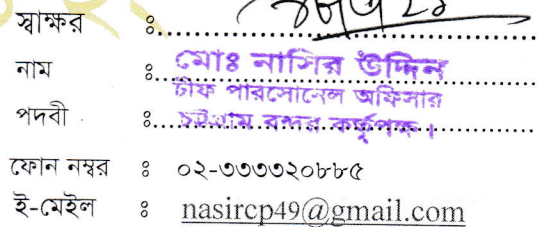 স্বাক্ষর ঃ
নাম ঃ মোঃ নাসির উদ্দিন
চীফ পারসোনেল অফিসার
পদবী ঃ চট্টগ্রাম বন্দর কর্তৃপক্ষ।
ফোন নম্বর ঃ ০২-৩৩৩৩২০৮৮৫
ই-মেইল ঃ nasircp49@gmail.com